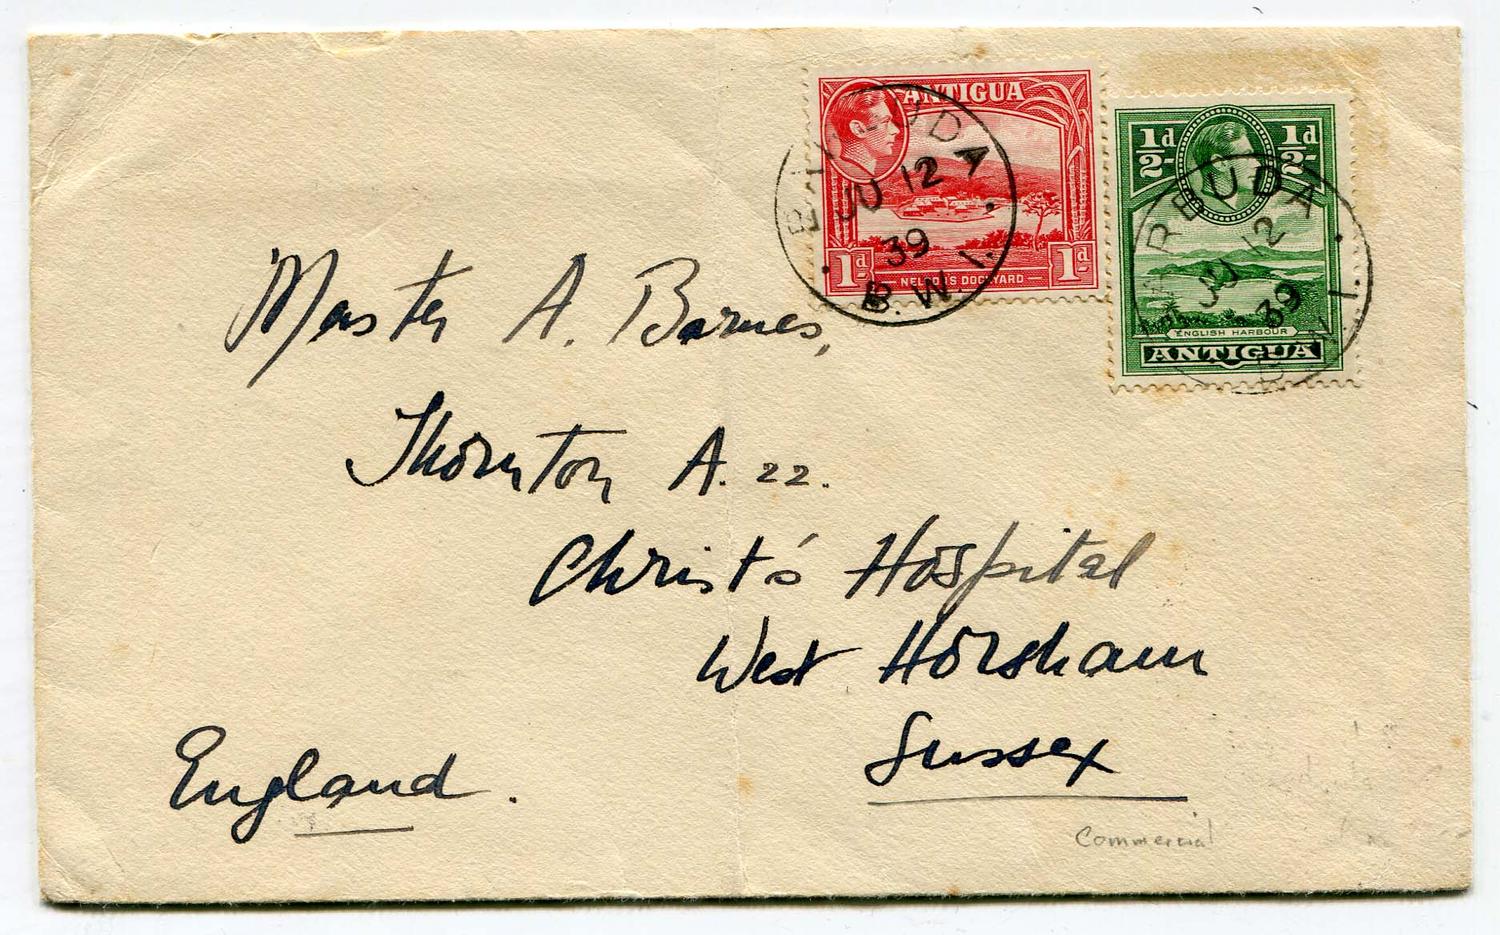 ANTIGUA
1d 1d
NELSON'S DOCKYARD
BARBUDA
JU 12
39
B.W.I.
½d ½d
ENGLISH HARBOUR
ANTIGUA
BARBUDA
JU 12
39
B.W.I.
Master A. Barnes,
Thornton A. 22.
Christ's Hospital
West Horsham
Sussex
England.
Commercial